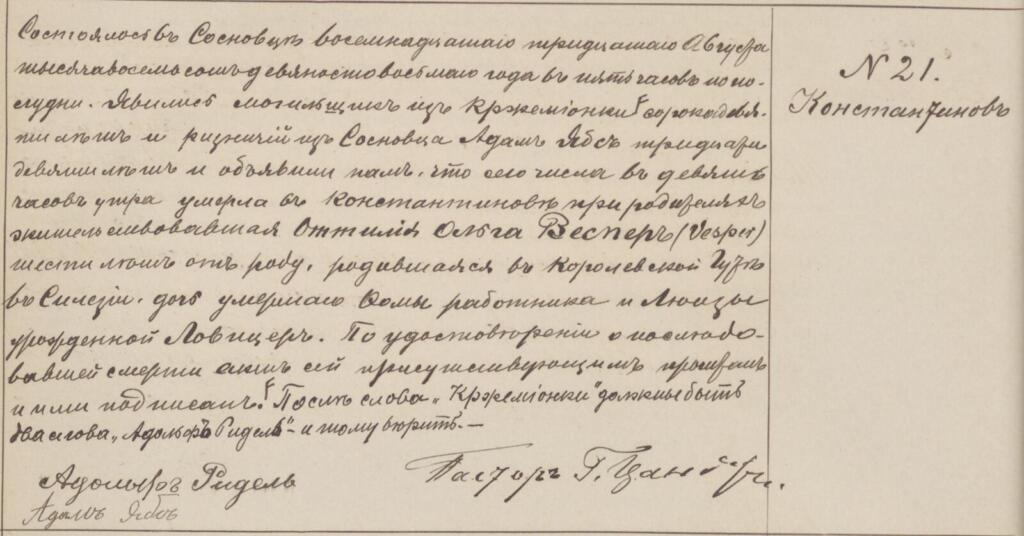 Состоялось въ Сосновцѣ восемнадцатаго тридцатаго Августа
тысяча восемьсотъ девяностовосьмаго года въ пять часовъ по по-
лудни. Явились могильщикъ изъ Кржеміонки Г сорока девя-
ти лѣтъ и ризничій изъ Сосновца Адамъ Ябсъ тридцати
девяти лѣтъ и объявили намъ, что сего числа въ девять
часовъ утра умерла въ Константиновѣ при родителяхъ
жительствовавшая Оттилія Ольга Весперъ (Vesper)
шести лѣтъ отъ роду, родившаяся въ Королевской Гутѣ
въ Силезіи, дочь умершаго Ѳомы работника и Люизы
урожденной Ловицеръ. По удостовѣреніи о послѣдо-
вавшей смерти актъ сей присутствующимъ прочитанъ
и ими подписанъ. Г Послѣ слова „Кржеміонки" должны быть
два слова „Адольфъ Ридель" - и тому вѣрить. —
Адольфъ Ридель
Пасторъ Г.
Адамъ Ябсъ
N 21.
Константиновъ